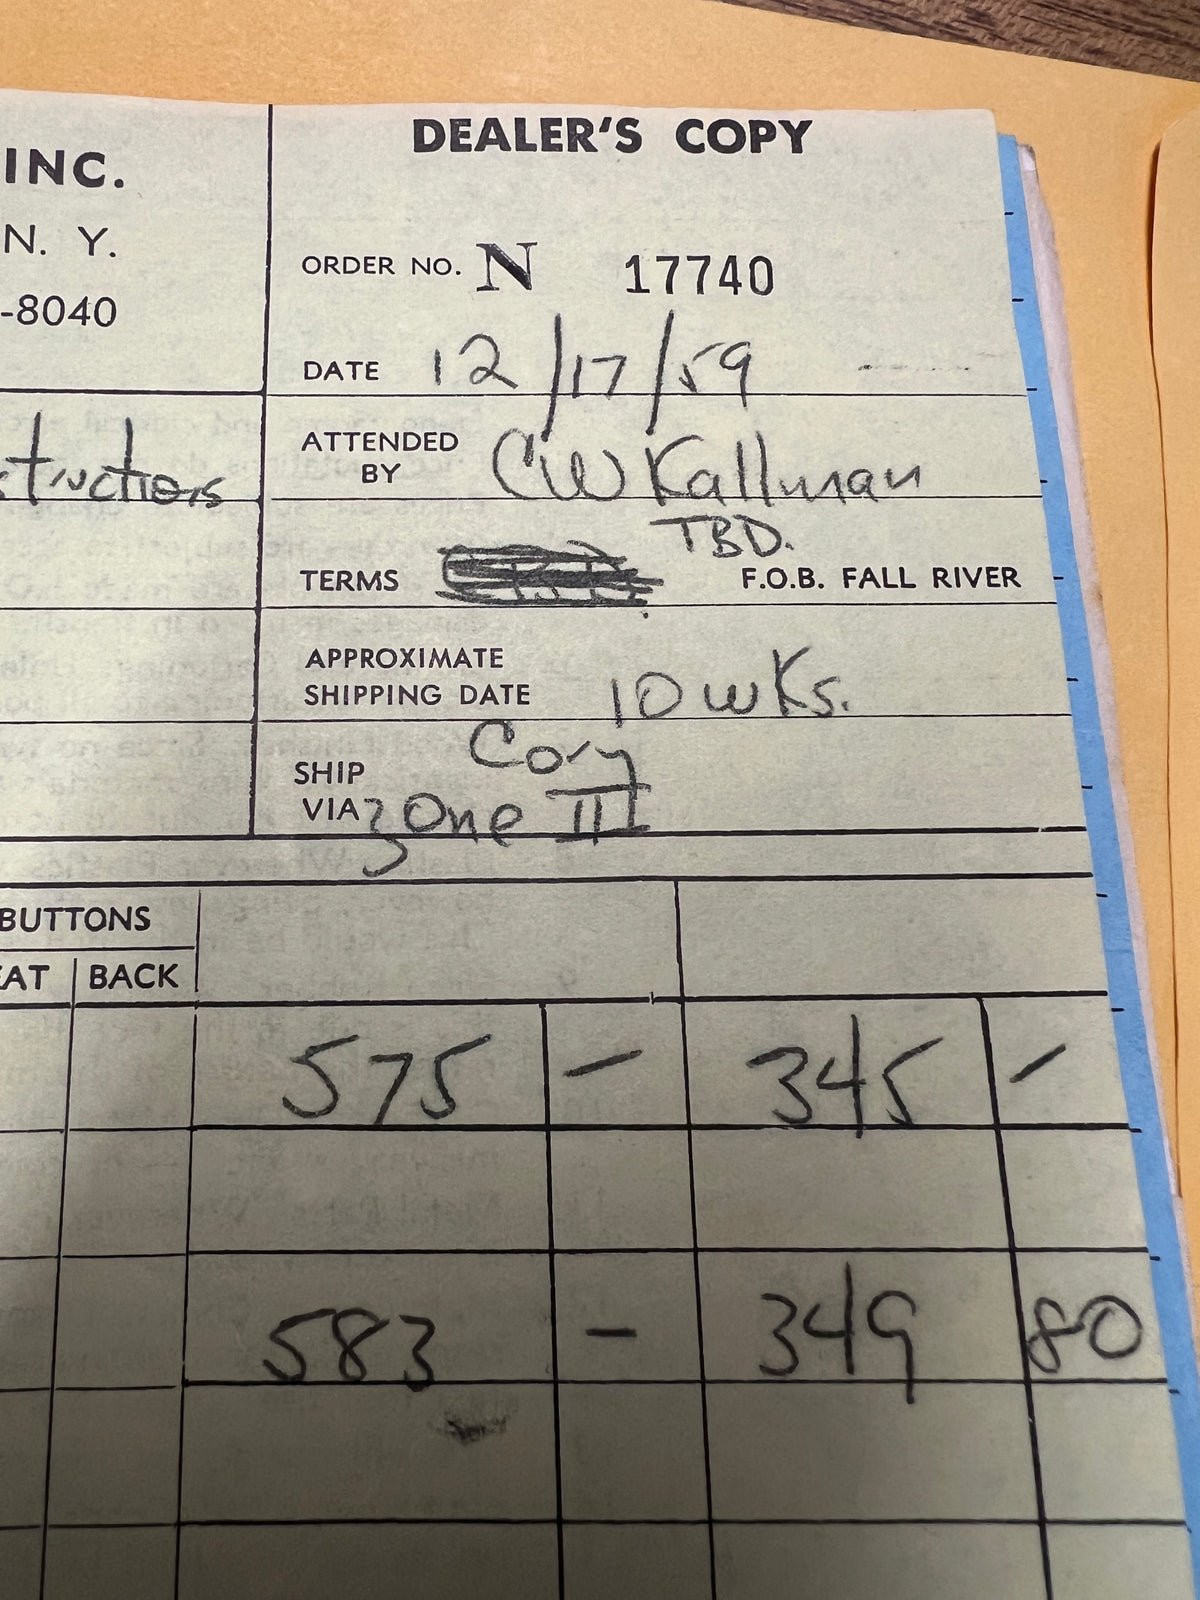 DEALER'S COPY
INC.
N. Y.
-8040
ORDER NO. N 17740
DATE 12/17/59
ATTENDED BY CW Kallman
structions
TBD.
TERMS F.O.B. FALL RIVER
APPROXIMATE
SHIPPING DATE 10 wks.
SHIP VIA Cory
zone III
BUTTONS
EAT BACK
575 – 345 –
583 – 349 80